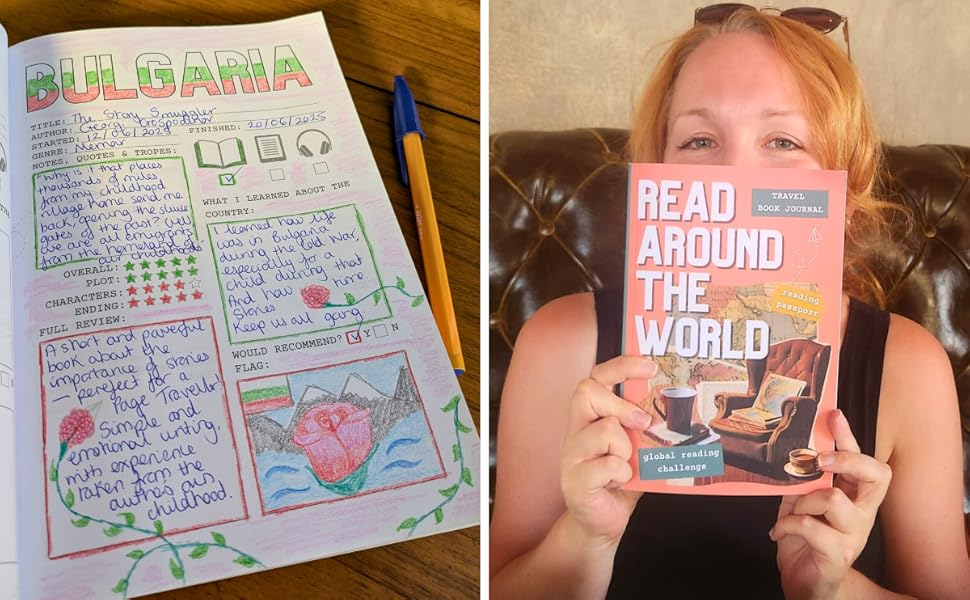 BULGARIA
TITLE: The Story Smuggler
AUTHOR: Georgi Gospodinov
STARTED: 12/06/2024 FINISHED: 20/06/2025
GENRE: Memoir
NOTES, QUOTES & TROPES:
"Why is it that places
thousands of miles
from my childhood
village home send me
back, opening the sluice
gates of the past? Well
we are all emigrants
from the homeland of
our childhood"
OVERALL:
PLOT:
CHARACTERS:
ENDING:
FULL REVIEW:
A short and powerful
book about the
importance of stories
– perefect for a
Page Traveller!
Simple and
emotional writing,
with experience
taken from the
authors own
childhood.
WHAT I LEARNED ABOUT THE
COUNTRY:
I learned how life
was in Bulgaria
during the Cold War,
especially for a
child during that
time.
And how
stories
Keep us all going
WOULD RECOMMEND? Y N
FLAG:
READ
AROUND
THE
WORLD
TRAVEL
BOOK JOURNAL
reading
passport
global reading
challenge